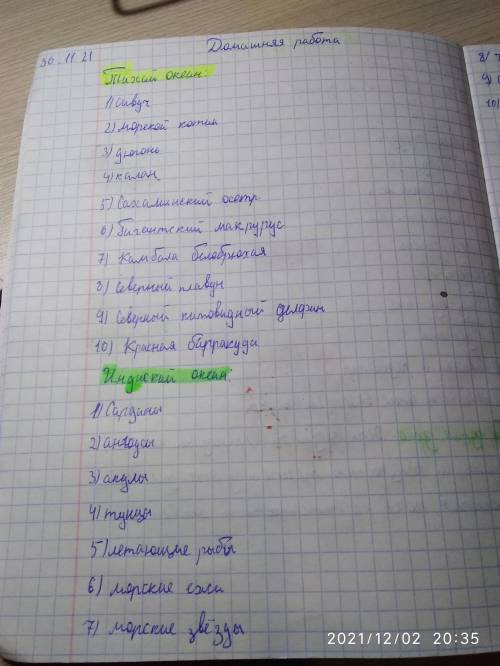 30.11.21 Домашняя работа
Тихий океан:
1) Сивуч
2) морской котик
3) дюгонь
4) калан
5) Сахалинский осетр
6) Гигантский макрурус
7) Камбала белобрюхая
8) Северный плавун
9) Северный китовидный делфин
10) Красная барракуда
Индиский океан.
1) Сардины
2) анчоусы
3) акулы
4) тунцы
5) летающие рыбы
6) морские ежи
7) морские звёзды
8)
9)
10)
2021/12/02 20:35